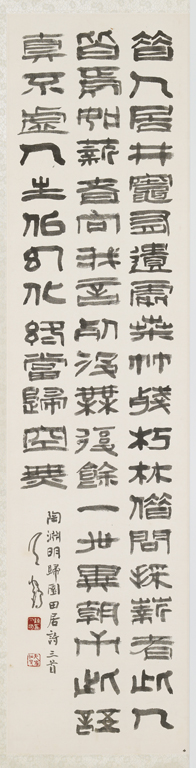 昔人居井竈有遺處桑竹殘朽株借問採薪者此人
皆焉如薪者向我言死没無復餘一世異朝市此語
真不虛人生似幻化終當歸空無
陶淵明歸園田居詩三首